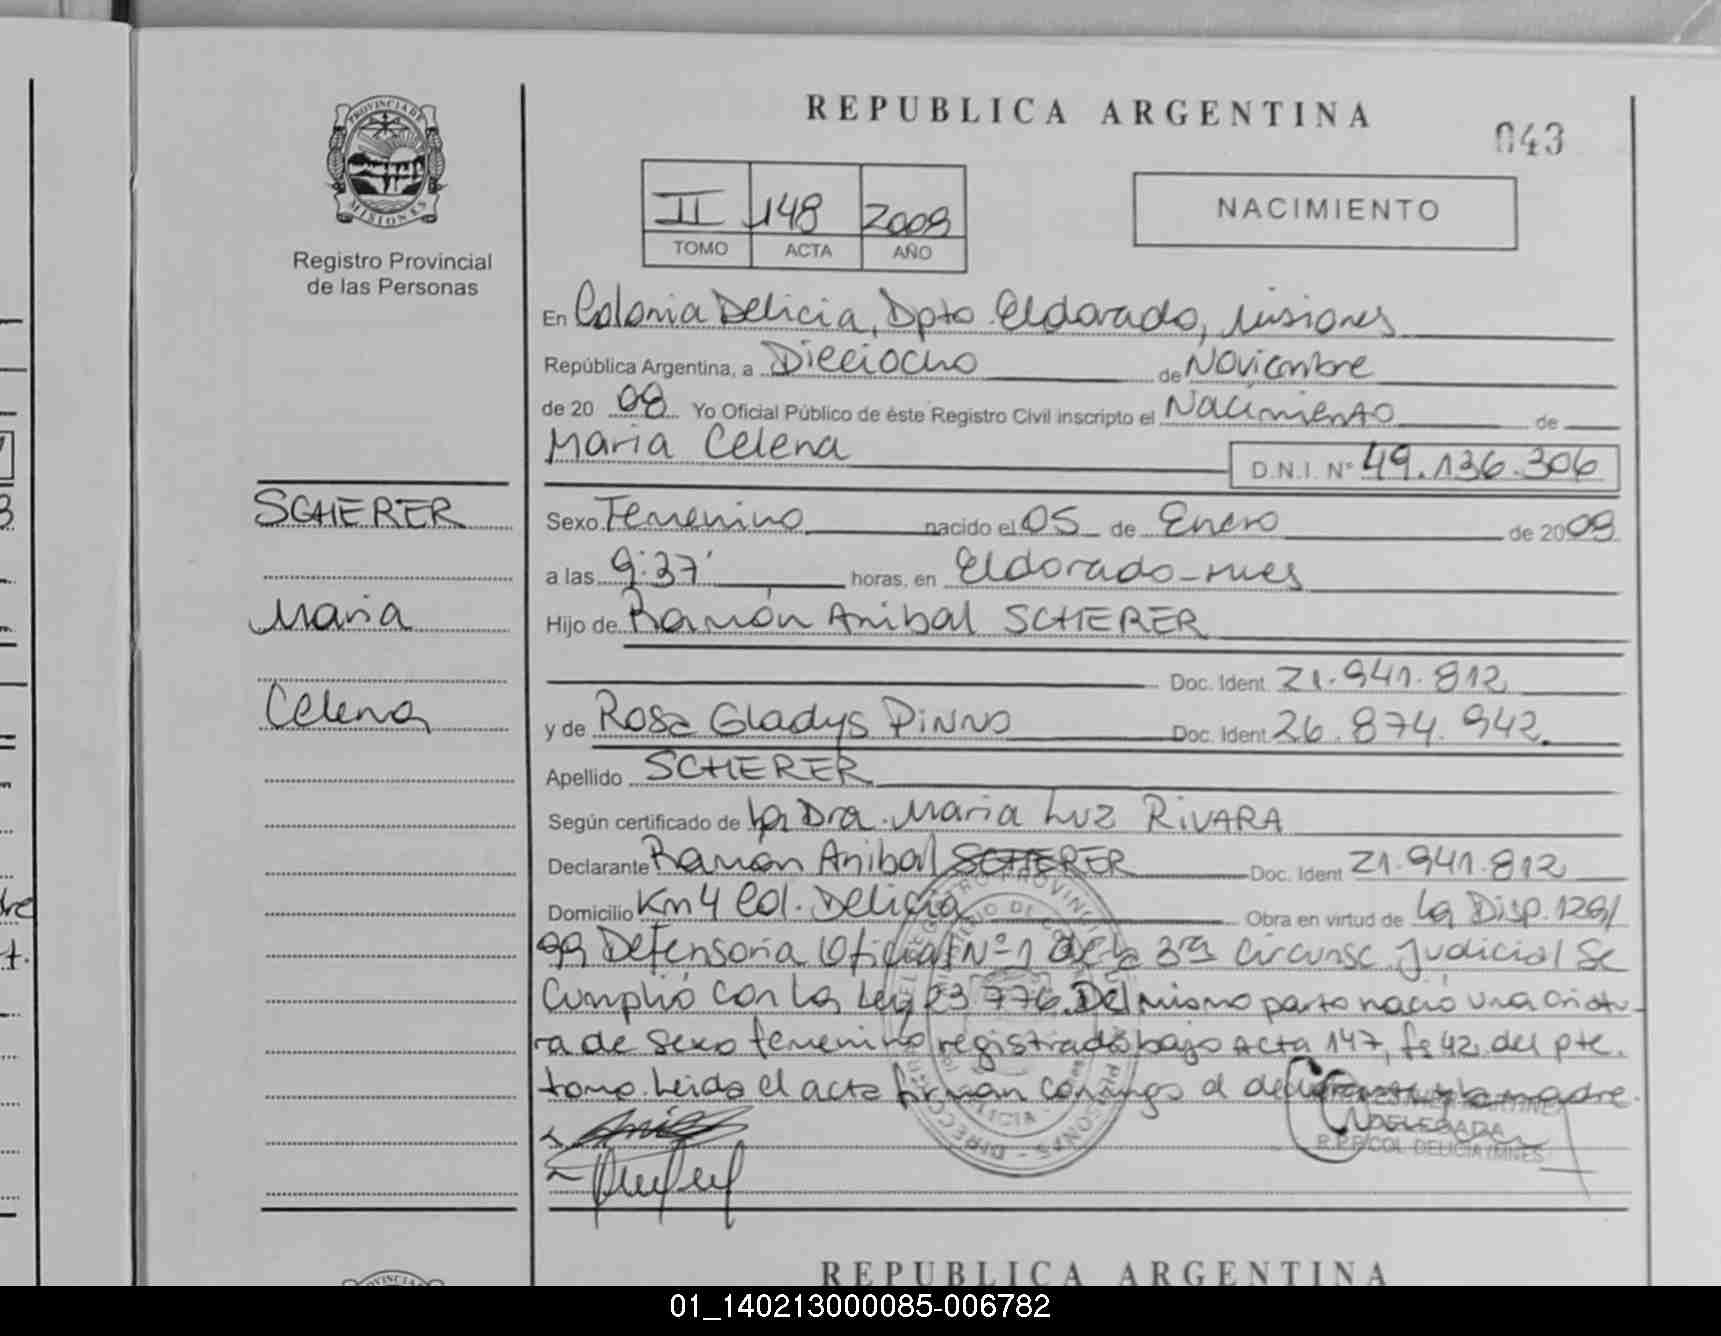 PROVINCIA DE
MISIONES
Registro Provincial
de las Personas
REPUBLICA ARGENTINA
043
II 148 2009
TOMO ACTA AÑO
NACIMIENTO
En Colonia Delicia, Dpto Eldorado, Misiones
República Argentina, a Dieciocho de Noviembre
de 20 09 Yo Oficial Público de éste Registro Civil inscripto el Nacimiento de
Maria Celena D.N.I. Nº 49.136.306
SCHERER
Sexo Femenino nacido el 05 de Enero de 2009
a las 9:37' horas, en Eldorado-Mnes
Maria
Hijo de Ramón Anibal SCHERER
Doc. Ident 21.941.812
Celena
y de Rosa Gladys Pinno Doc. Ident 26.874.942
Apellido SCHERER
Según certificado de la Dra. Maria Luz RIVARA
Declarante Ramón Anibal SCHERER Doc. Ident 21.941.812
Domicilio Km 4 Col. Delicia Obra en virtud de la Disp. 129/
09 Defensoria Oficial Nº 1 de la 3ra Circunsc Judicial Se
Cumplió con la Ley 23.776. Del mismo parto nació una criatu-
ra de sexo femenino registrado bajo Acta 147, fs 42 del pte.
tomo. Leida el acta firman conmigo el declarante y la madre.
DELEGADA
R.P.P. COL. DELICIA (MNES)
REPUBLICA ARGENTINA
01_140213000085-006782